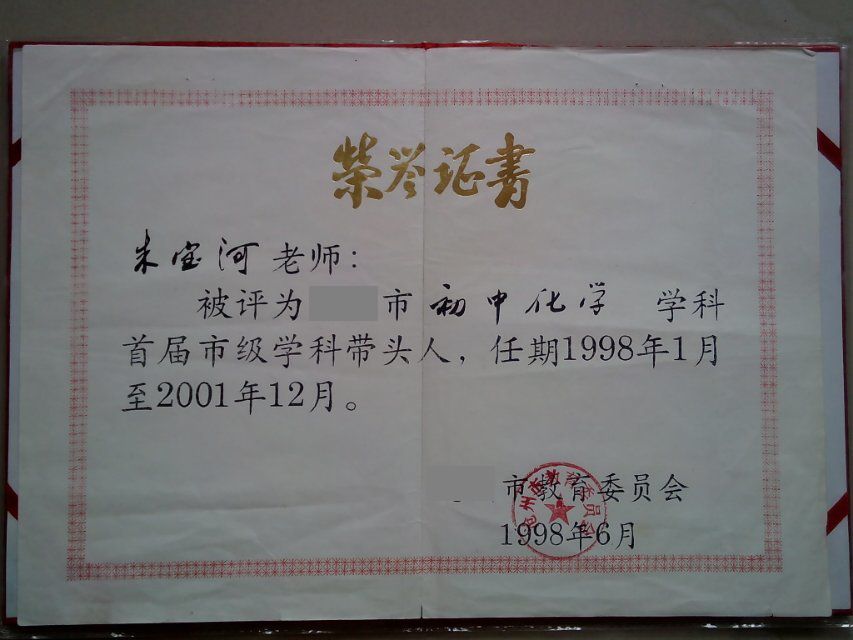 荣誉证书
朱宝河 老师：
被评为 市 初中化学 学科
首届市级学科带头人，任期1998年1月
至2001年12月。
市教育委员会
1998年6月